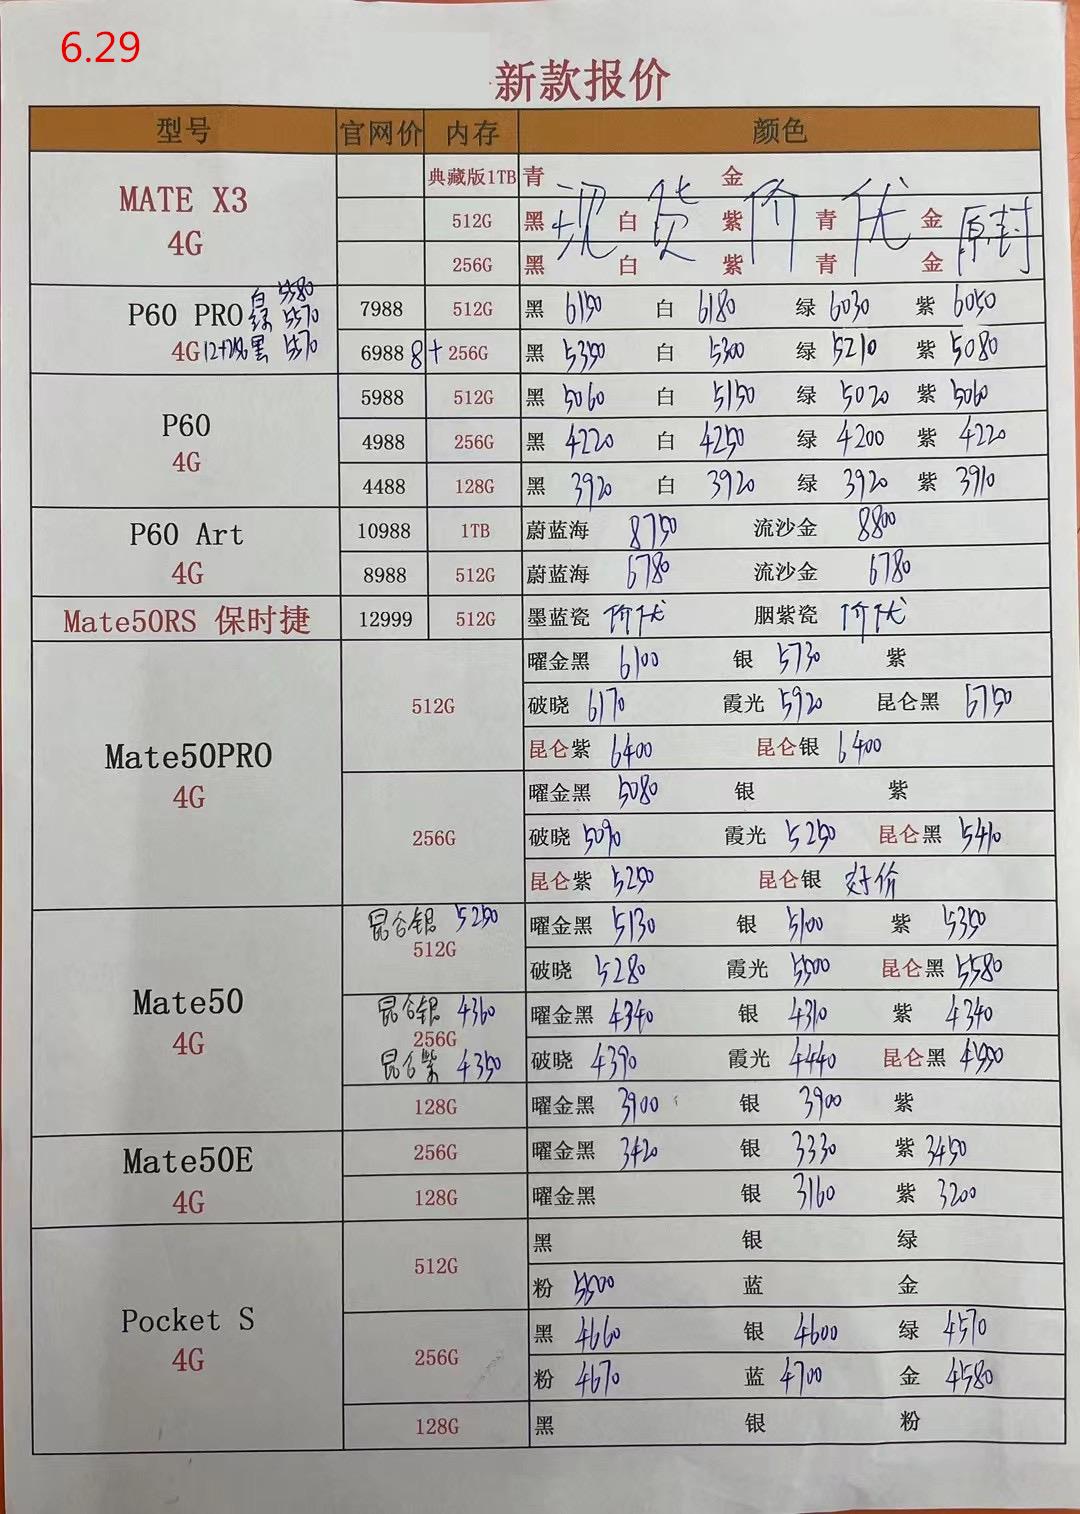 6.29
新款报价
型号 官网价 内存 颜色
MATE X3 4G
典藏版1TB 青 金
512G 黑 白 紫 青 金
256G 黑 白 紫 青 金
现货价优 原封
P60 PRO 白 5580
绿 5570
4G 12+256 黑 5570
7988 512G 黑 6150 白 6180 绿 6030 紫 6050
6988 8+256G 黑 5350 白 5300 绿 5210 紫 5080
P60 4G
5988 512G 黑 5060 白 5150 绿 5020 紫 5060
4988 256G 黑 4220 白 4250 绿 4200 紫 4220
4488 128G 黑 3920 白 3920 绿 3920 紫 3910
P60 Art 4G
10988 1TB 蔚蓝海 8750 流沙金 8800
8988 512G 蔚蓝海 6780 流沙金 6780
Mate50RS 保时捷 12999 512G 墨蓝瓷 价优 胭紫瓷 价优
Mate50PRO 4G
512G 曜金黑 6100 银 5730 紫
破晓 6170 霞光 5920 昆仑黑 6750
昆仑紫 6400 昆仑银 6400
256G 曜金黑 5080 银 紫
破晓 5090 霞光 5250 昆仑黑 5410
昆仑紫 5250 昆仑银 好价
Mate50 4G
昆仑银 5250
512G 曜金黑 5130 银 5100 紫 5350
破晓 5280 霞光 5500 昆仑黑 5580
昆仑银 4360
256G 曜金黑 4340 银 4310 紫 4340
昆仑紫 4350
破晓 4390 霞光 4440 昆仑黑 4500
128G 曜金黑 3900 银 3900 紫
Mate50E 4G
256G 曜金黑 3420 银 3330 紫 3450
128G 曜金黑 银 3160 紫 3200
Pocket S 4G
512G 黑 银 绿
粉 5500 蓝 金
256G 黑 4660 银 4600 绿 4570
粉 4670 蓝 4700 金 4580
128G 黑 银 粉